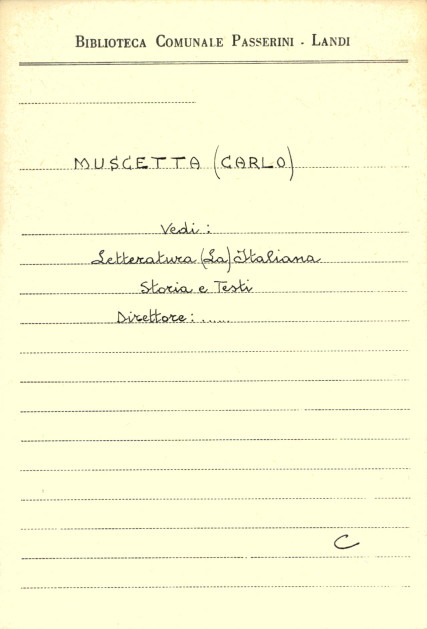 BIBLIOTECA COMUNALE PASSERINI - LANDI
MUSCETTA (CARLO)
Vedi:
Letteratura (La) Italiana
Storia e Testi
Direttore: ......
C